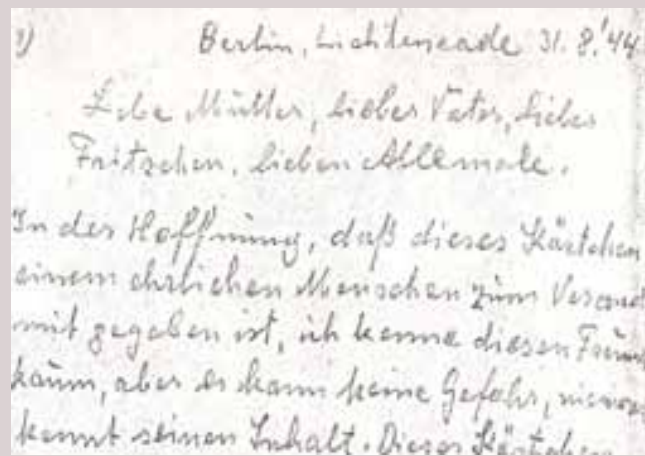 1) Berlin, Lichtenrade 31.8.'44
Liebe Mutter, lieber Vater, liebes
Fritzchen, lieben Allemale.
In der Hoffnung, daß dieses Kästchen
einem ehrlichen Menschen zum Versand
mit gegeben ist, ich kenne diesen Freund
kaum, aber es kann keine Gefahr,
kennt seinen Inhalt. Dieses Kästchen